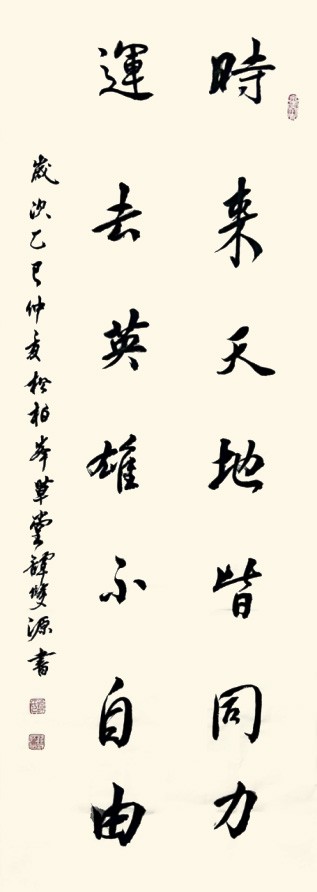 時来天地皆同力
運去英雄不自由
歲次乙巳仲夏於柏峯草堂譚雙源書